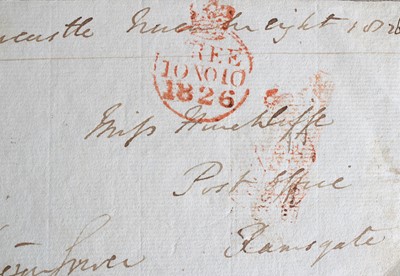 castle November eight 1826
FREE
10 NO 10
1826
Miss Hinchliffe
Post Office
Ramsgate